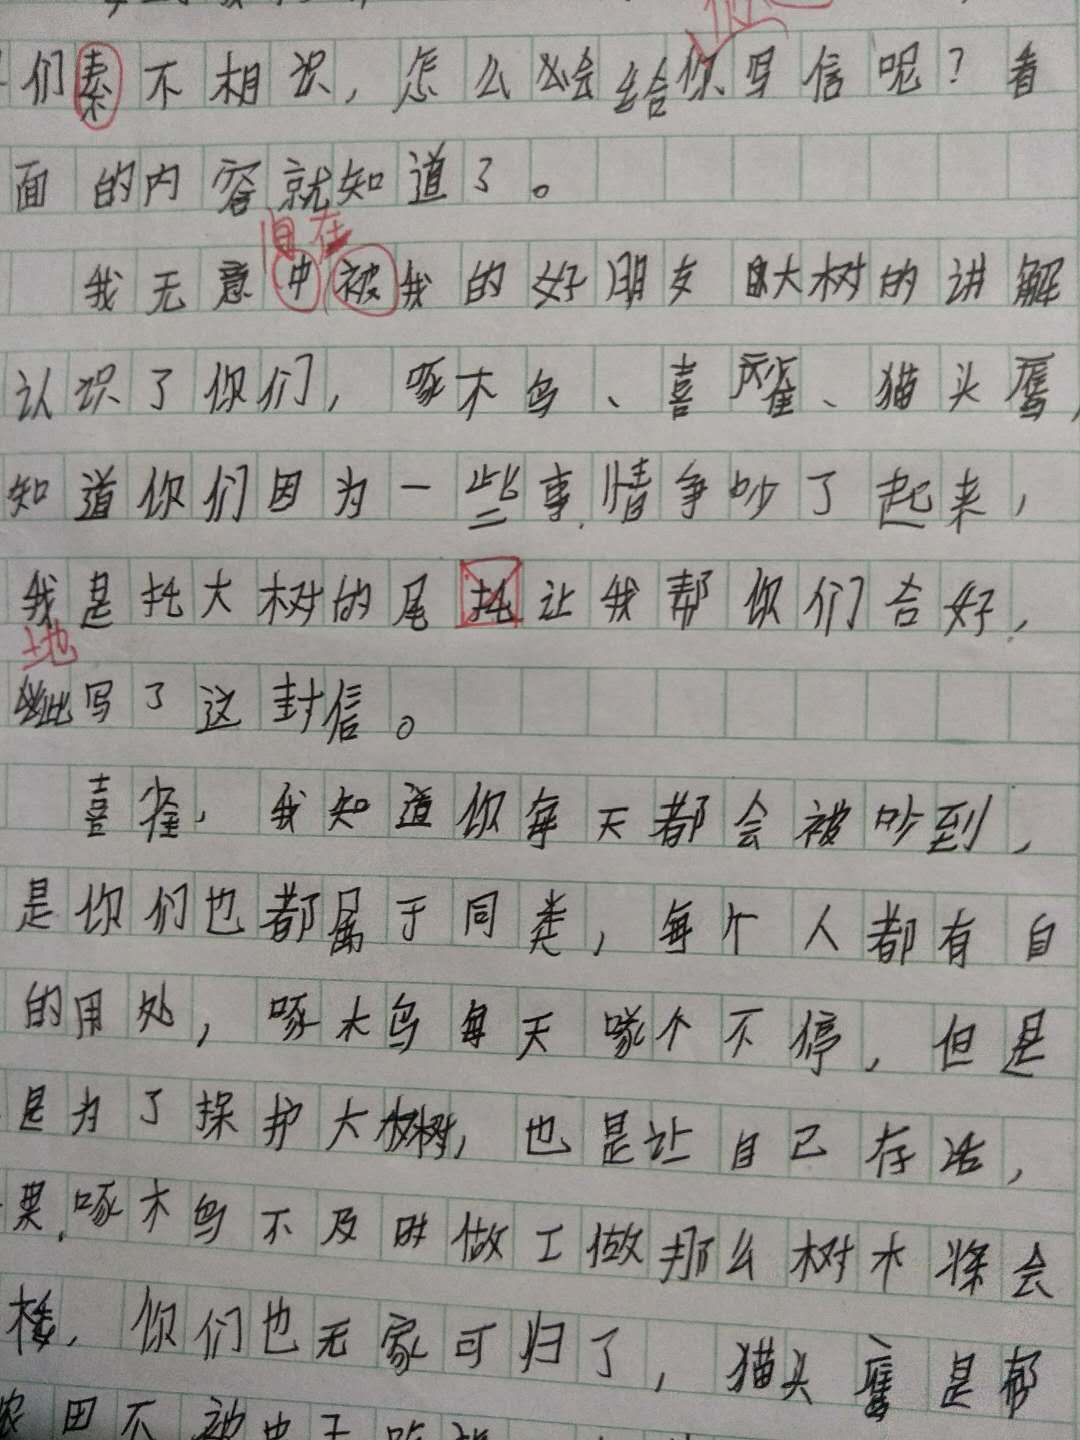 们素不相识，怎么会给你写信呢？看
面的内容就知道了。
间在
我无意中被我的好朋友大树的讲解
认识了你们，啄木鸟、喜雀、猫头鹰，
知道你们因为一些事情争吵了起来，
我是托大树的尾托让我帮你们合好，
地
此写了这封信。
喜雀，我知道你每天都会被吵到，
是你们也都属于同类，每个人都有自
的用处，啄木鸟每天啄个不停，但是
是为了保护大树，也是让自己存活，
果啄木鸟不及时做工做那么树木将会
你们也无家可归了，猫头鹰是帮
农田不被虫子